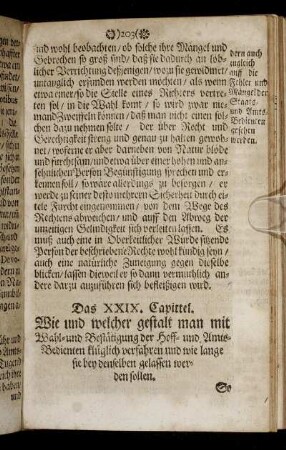 )203(
und wohl beobachten / ob solche ihre Mängel und
Gebrechen so groß sind / daß sie dadurch an löb-
licher Verrichtung desjenigen / wozu sie gewidmet /
untauglich erfunden werden möchten / als wenn
etwa einer / so die Stelle eines Richters vertre-
ten sol / in die Wahl komt / so wird zwar nie-
mand Zweiffeln können / daß man nicht einen sol-
chen dazu nehmen solte / der über Recht und
Gerechtigkeit streng und genau zu halten gewoh-
net / woferne er aber darneben von Natur blöde
und furchtsam / und etwa über einer hohen und an-
sehnlichen Person Begünstigung sprechen und er-
kennen soll / so wäre allerdings zu besorgen / er
werde zu seiner desto mehrern Sicherheit durch ei-
tele Furcht eingenommen / von dem Wege des
Rechtens abweichen / und auff den Abweg der
unzeitigen Gelindigkeit sich verleiten lassen. Es
muß auch eine in Obrigkeitlicher Würde sitzende
Person der beschriebene Rechte wohl kündig seyn /
auch eine natürliche Zuneigung gegen dieselbe
blicken / lassen dieweil er so dann vermuthlich an-
dere darzu anzuführen sich befleißigen wird.
dern auch
zugleich
auff die
Fehler und
Mängel der
Staats-
und Amts-
Bedienten
gesehen
werden.
Das XXIX. Capittel.
Wie und welcher gestalt man mit
Wahl- und Bestätigung der Hoff- und Amts-
Bedienten klüglich verfahren und wie lange
sie bey denselben gelassen wer-
den sollen.